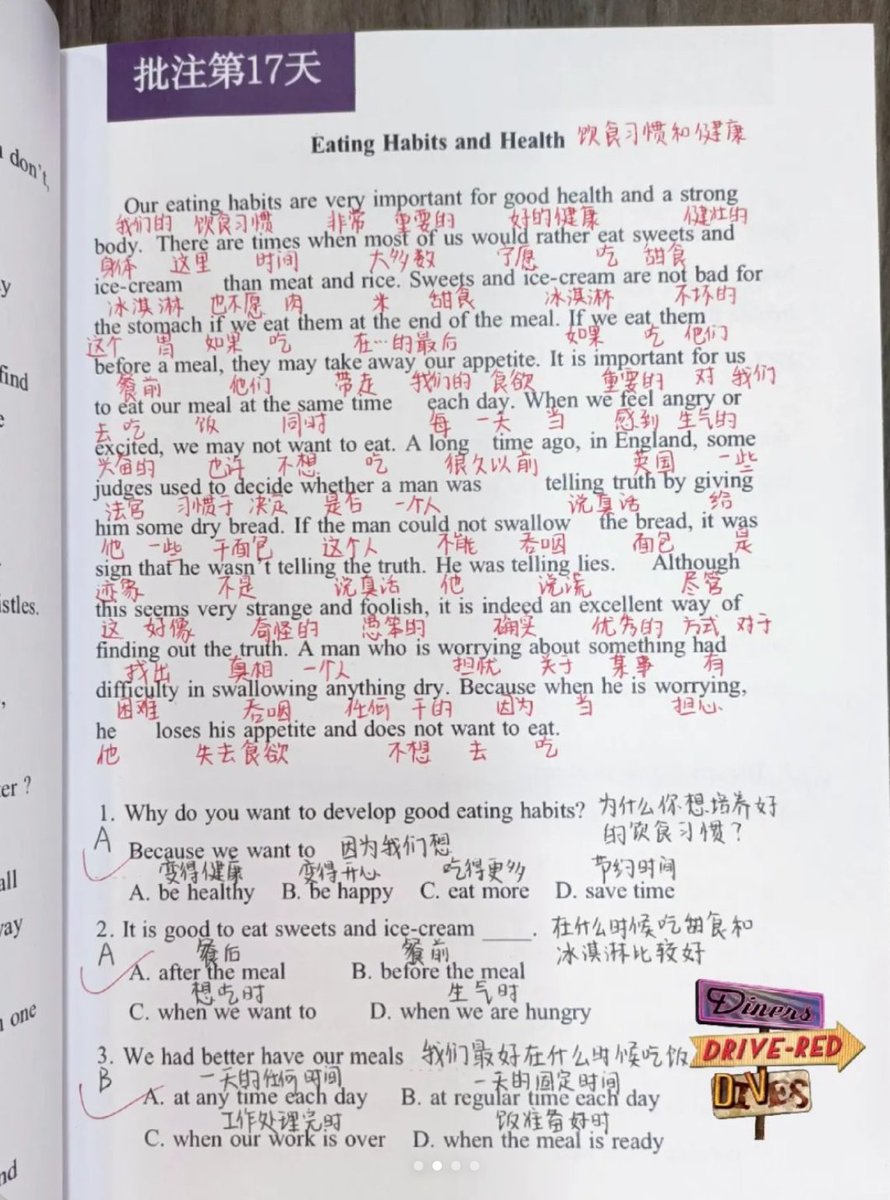 批注第17天
Eating Habits and Health 饮食习惯和健康
Our eating habits are very important for good health and a strong
我们的 饮食习惯 非常 重要的 好的健康 健壮的
body. There are times when most of us would rather eat sweets and
身体 这里 时间 大多数 了愿 吃 甜食
ice-cream than meat and rice. Sweets and ice-cream are not bad for
冰淇淋 也不愿 肉 米 甜食 冰淇淋 不坏的
the stomach if we eat them at the end of the meal. If we eat them
这个 胃 如果 吃 在…的最后 如果 吃 他们
before a meal, they may take away our appetite. It is important for us
餐前 他们 带走 我们的 食欲 重要的 对 我们
to eat our meal at the same time each day. When we feel angry or
去 吃 饭 同时 每 一天 当 感到 生气的
excited, we may not want to eat. A long time ago, in England, some
兴奋的 也许 不想 吃 很久以前 英国 一些
judges used to decide whether a man was telling truth by giving
法官 习惯于 决定 是否 一个人 说真话 给
him some dry bread. If the man could not swallow the bread, it was
他 一些 干面包 这个人 不能 吞咽 面包 是
sign that he wasn't telling the truth. He was telling lies. Although
迹象 不是 说真话 他 说谎 尽管
this seems very strange and foolish, it is indeed an excellent way of
这 好像 奇怪的 愚笨的 确实 优秀的 方式 对于
finding out the truth. A man who is worrying about something had
找出 真相 一个人 担忧 关于 某事 有
difficulty in swallowing anything dry. Because when he is worrying,
困难 吞咽 任何 干的 因为 当 担心
he loses his appetite and does not want to eat.
他 失去食欲 不想 去 吃
1. Why do you want to develop good eating habits? 为什么你想培养好
的饮食习惯？
A
Because we want to 因为我们想
变得健康 变得开心 吃得更多 节约时间
A. be healthy B. be happy C. eat more D. save time
2. It is good to eat sweets and ice-cream ____. 在什么时候吃甜食和
A 餐后 餐前 冰淇淋比较好
A. after the meal B. before the meal
想吃时 生气时
C. when we want to D. when we are hungry
3. We had better have our meals 我们最好在什么时候吃饭
B 一天的任何时间 一天的固定时间
A. at any time each day B. at regular time each day
工作处理完时 饭准备好时
C. when our work is over D. when the meal is ready
Diners
DRIVE-RED
DIVES
don't,
find
istles.
er ?
all
way
one
nd